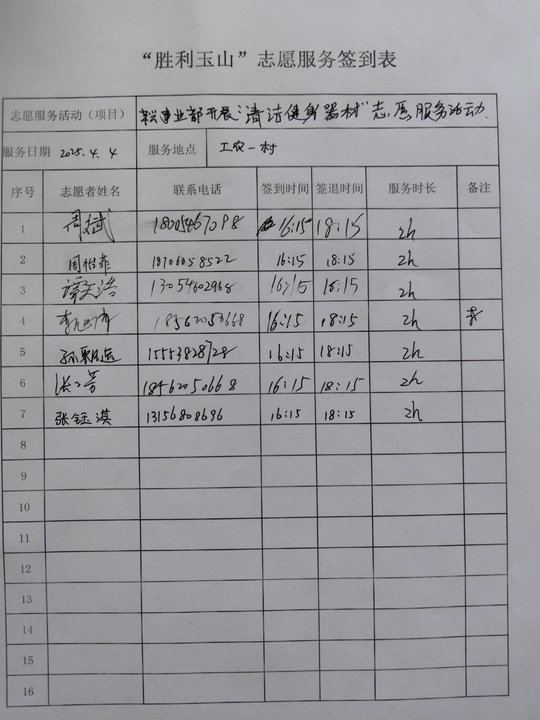 “胜利玉山”志愿服务签到表
志愿服务活动（项目） 事业部开展“清洁健身器材”志愿服务活动.
服务日期 2025.4.4 服务地点 工农一村
序号 志愿者姓名 联系电话 签到时间 签退时间 服务时长 备注
1 周斌 16:15 18:15 2h
2 周 18706058522 16:15 18:15 2h
3 谭文浩 13054602968 16:15 18:15 2h
4 李 18562050668 16:15 18:15 2h
5 孙 15553828728 16:15 18:15 2h
6 张 18562050668 16:15 18:15 2h
7 张钰淇 13156808696 16:15 18:15 2h
8
9
10
11
12
13
14
15
16